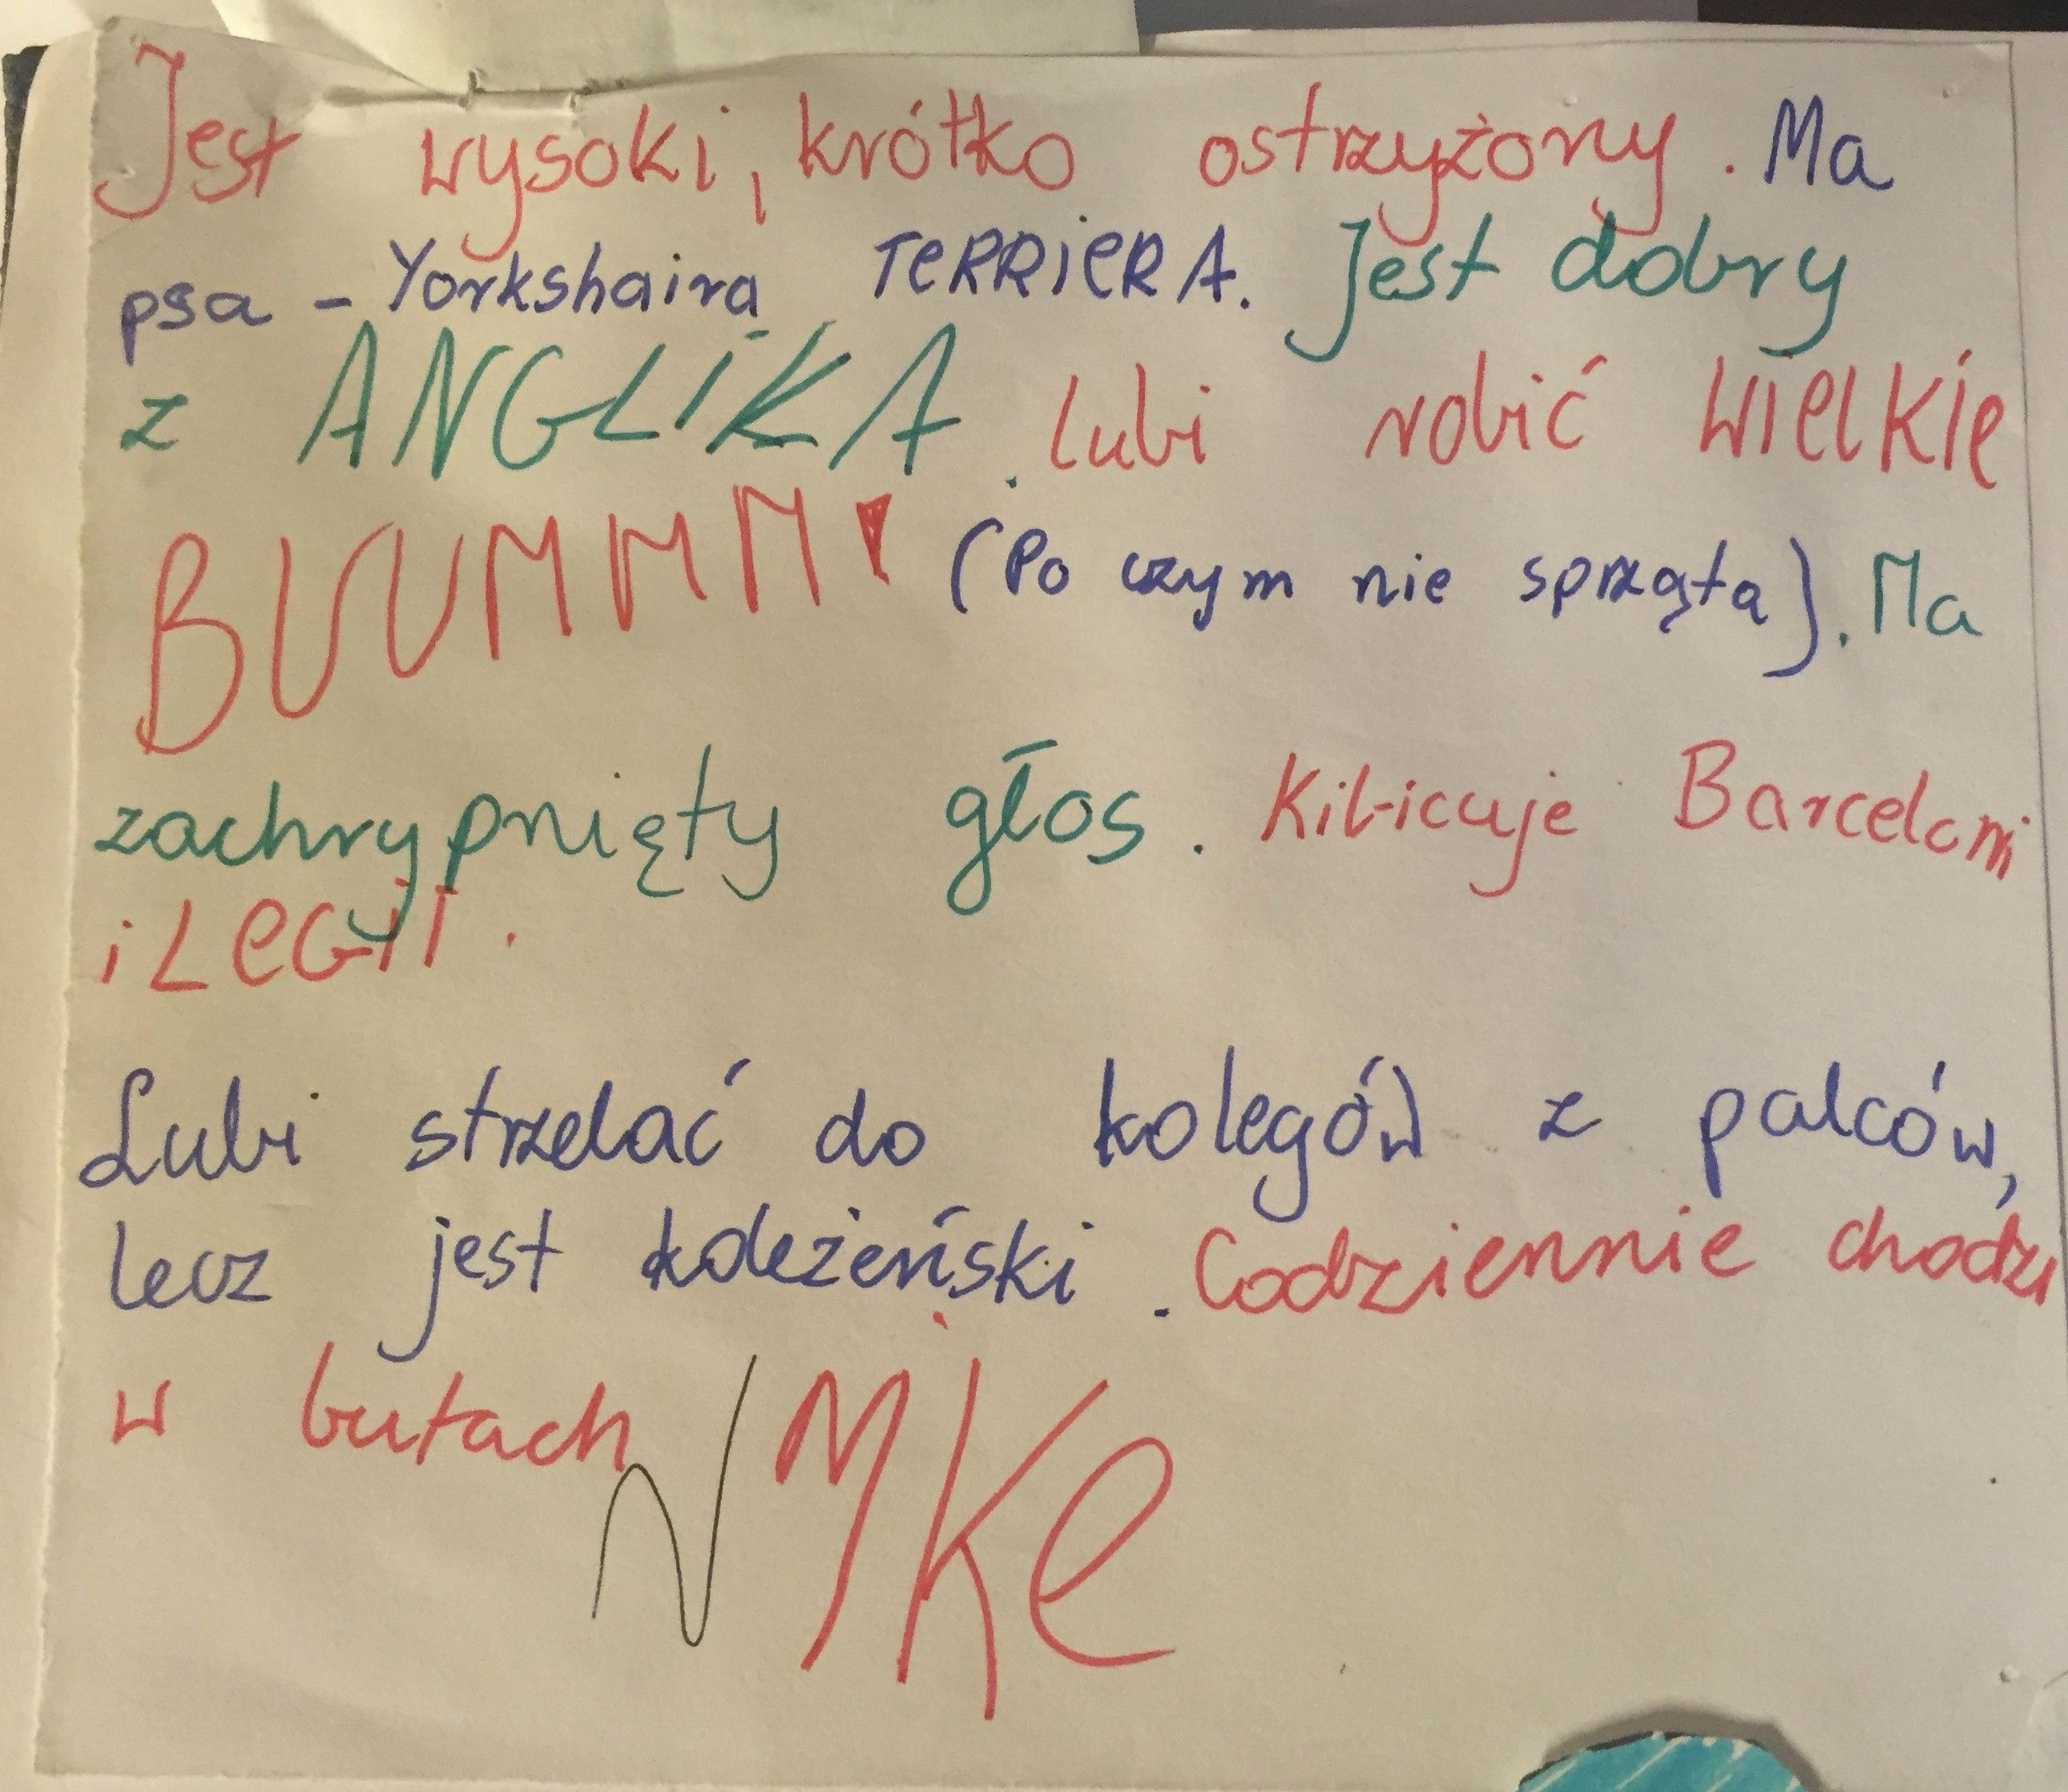 Jest wysoki, krótko ostrzyżony. Ma
psa - Yorkshaira TeRRieRA. Jest dobry
z ANGLiKA. Lubi robić WielKie
BUUMMM! (Po czym nie sprząta). Ma
zachrypnięty głos. Kibicuje Barceloni
i LeGii.
Lubi strzelać do kolegów z palców,
lecz jest koleżeński. Codziennie chodzi
w butach NiKe